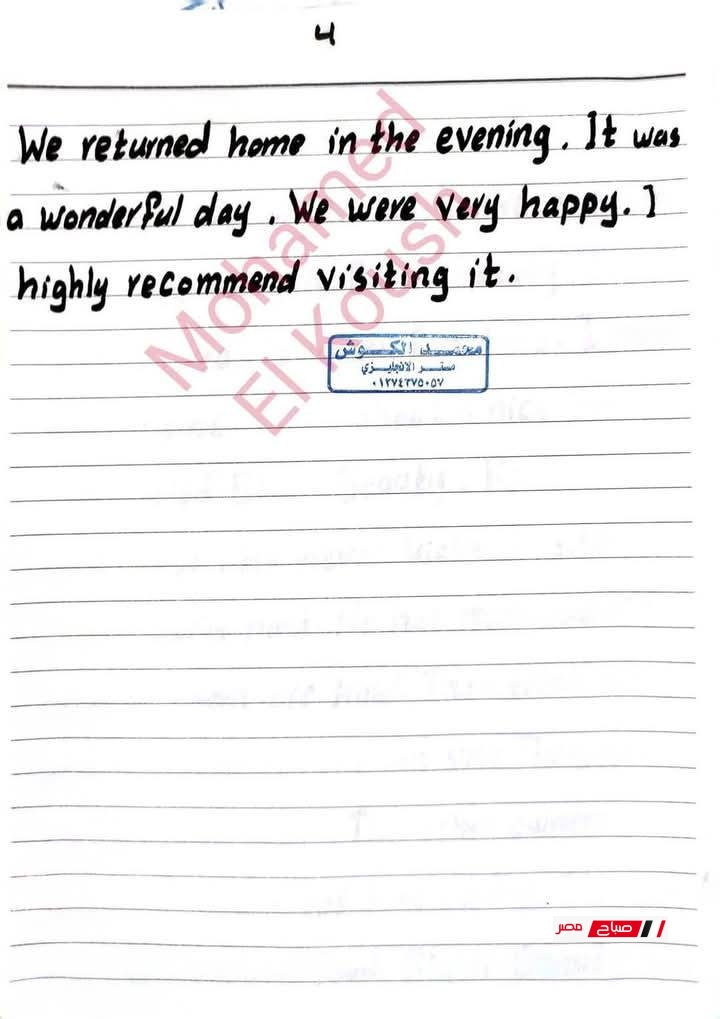 4
We returned home in the evening. It was
a wonderful day. We were very happy. I
highly recommend visiting it.
Mohamed
El Koush
محمد الكوش
مستر الانجليزي
٠١٢٧٤٢٧٥٠٥٧
صباح مصر